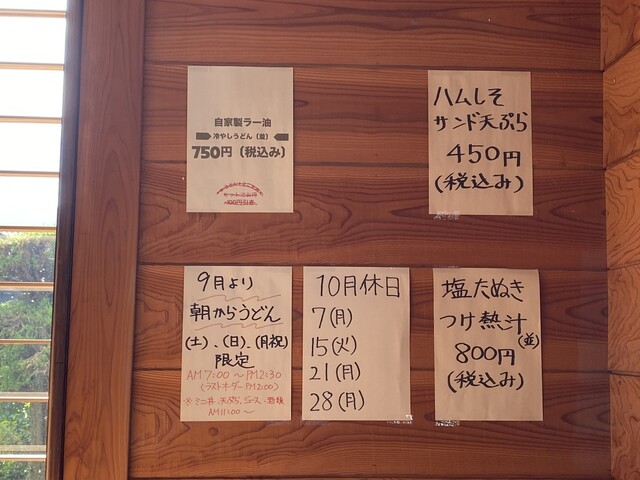 自家製ラー油
冷やしうどん（並）
750円（税込み）
100円引き
ハムしそ
サンド天ぷら
450円
(税込み)
9月より
朝からうどん
(土)、(日)、(月祝)
限定
AM7:00～PM2:30
(ラストオーダーPM2:00)
※ミニ丼、天ぷら、ジュース、酒類
AM11:00～
10月休日
7(月)
15(火)
21(月)
28(月)
塩たぬき
つけ熱汁
(並)
800円
(税込み)